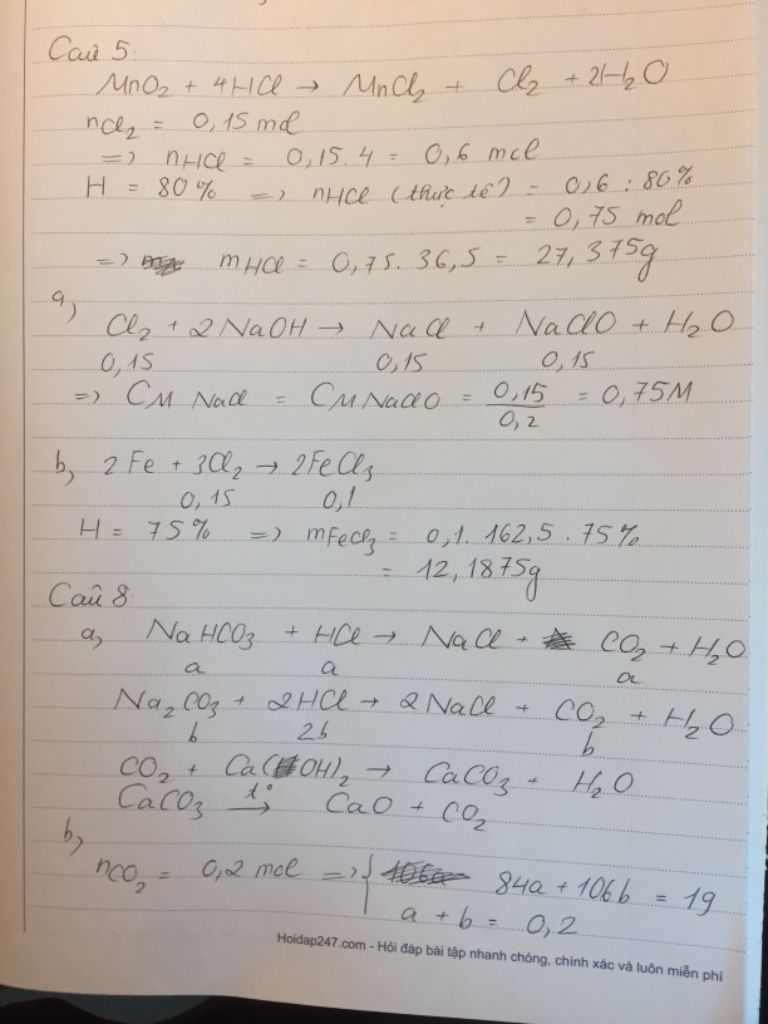 Câu 5:
MnO₂ + 4HCl → MnCl₂ + Cl₂ + 2H₂O
nCl₂ = 0,15 mol
=> nHCl = 0,15.4 = 0,6 mol
H = 80% => nHCl (thực tế) = 0,6 : 80%
= 0,75 mol
=> mHCl = 0,75. 36,5 = 27,375g
a,
Cl₂ + 2NaOH → NaCl + NaClO + H₂O
0,15 0,15 0,15
=> CM NaCl = CM NaClO = 0,15/0,2 = 0,75M
b, 2Fe + 3Cl₂ → 2FeCl₃
0,15 0,1
H = 75% => mFeCl₃ = 0,1. 162,5 . 75%
= 12,1875g
Câu 8
a, NaHCO₃ + HCl → NaCl + CO₂ + H₂O
a a a
Na₂CO₃ + 2HCl → 2NaCl + CO₂ + H₂O
b 2b b
CO₂ + Ca(OH)₂ → CaCO₃ + H₂O
CaCO₃ t°→ CaO + CO₂
b,
nCO₂ = 0,2 mol => { 84a + 106b = 19
a + b = 0,2
Hoidap247.com - Hỏi đáp bài tập nhanh chóng, chính xác và luôn miễn phí